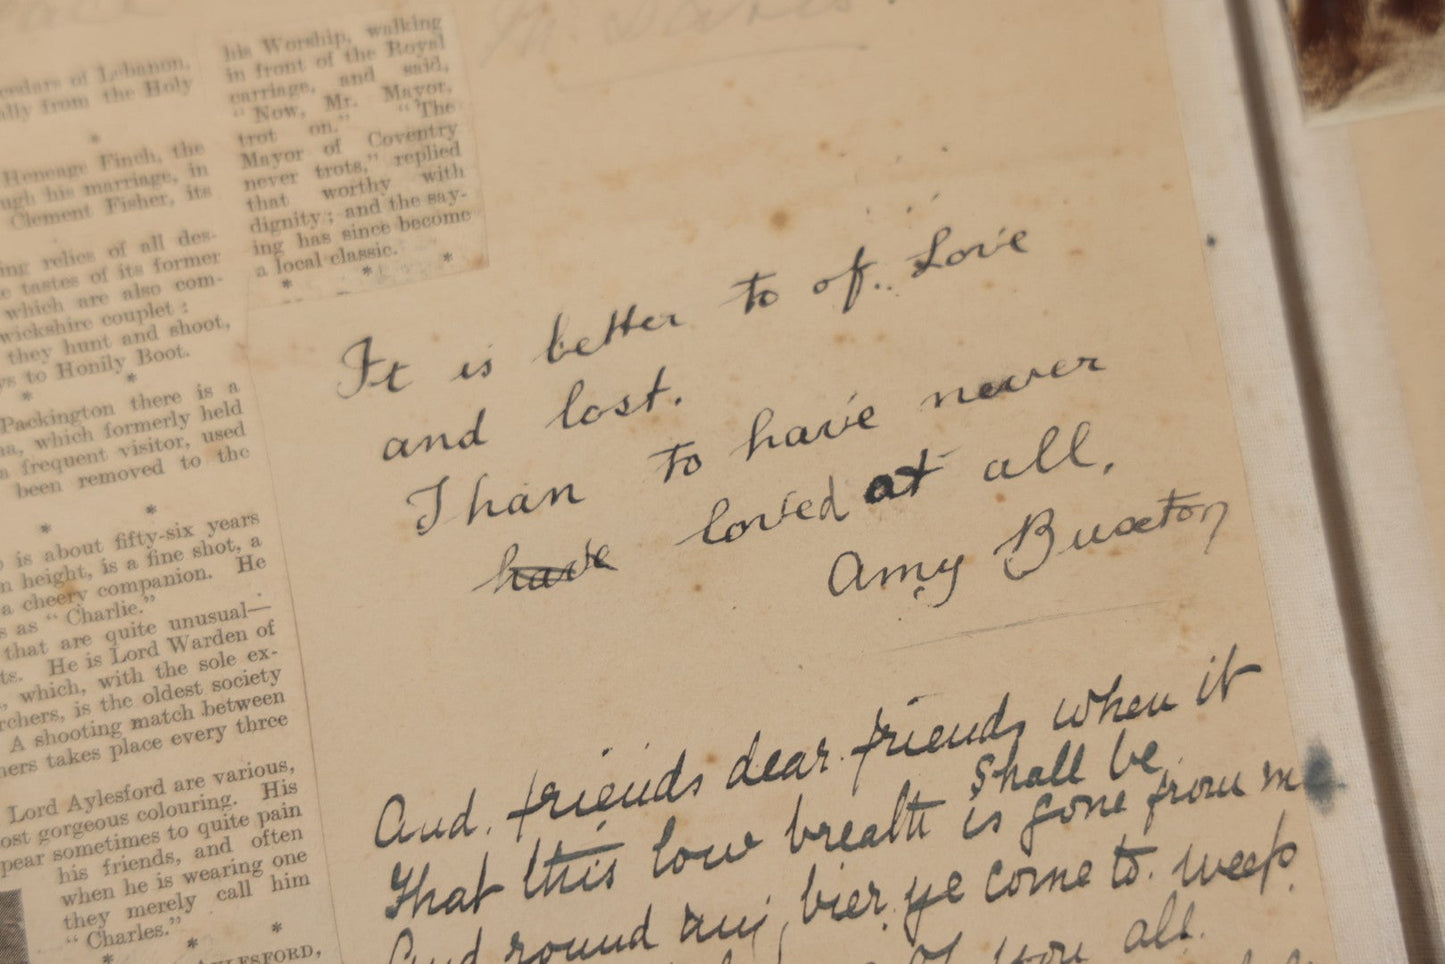 cedars of Lebanon,
ally from the Holy
*
Heneage Finch, the
ugh his marriage, in
Clement Fisher, its
ing relics of all des-
e tastes of its former
which are also com-
wickshire couplet :
they hunt and shoot,
ys to Honily Boot.
* *
Packington there is a
na, which formerly held
a frequent visitor, used
been removed to the
* *
is about fifty-six years
n height, is a fine shot, a
a cheery companion. He
s as "Charlie."
that are quite unusual—
ts. He is Lord Warden of
" which, with the sole ex-
rchers, is the oldest society
A shooting match between
ners takes place every three
Lord Aylesford are various,
ost gorgeous colouring. His
pear sometimes to quite pain
his friends, and often
when he is wearing one
they merely call him
"Charles."
* * *
AYLESFORD,
his Worship, walking
in front of the Royal
carriage, and said,
"Now, Mr. Mayor,
trot on." "The
Mayor of Coventry
never trots," replied
that worthy with
dignity; and the say-
ing has since become
a local classic.
* * *
It is better to of.. Love
and lost.
Than to have never
have loved at all.
Amy Buxton
And. friends dear friends when it
shall be
That this low breath is gone from me
And round my bier ye come to weep.
of you all.